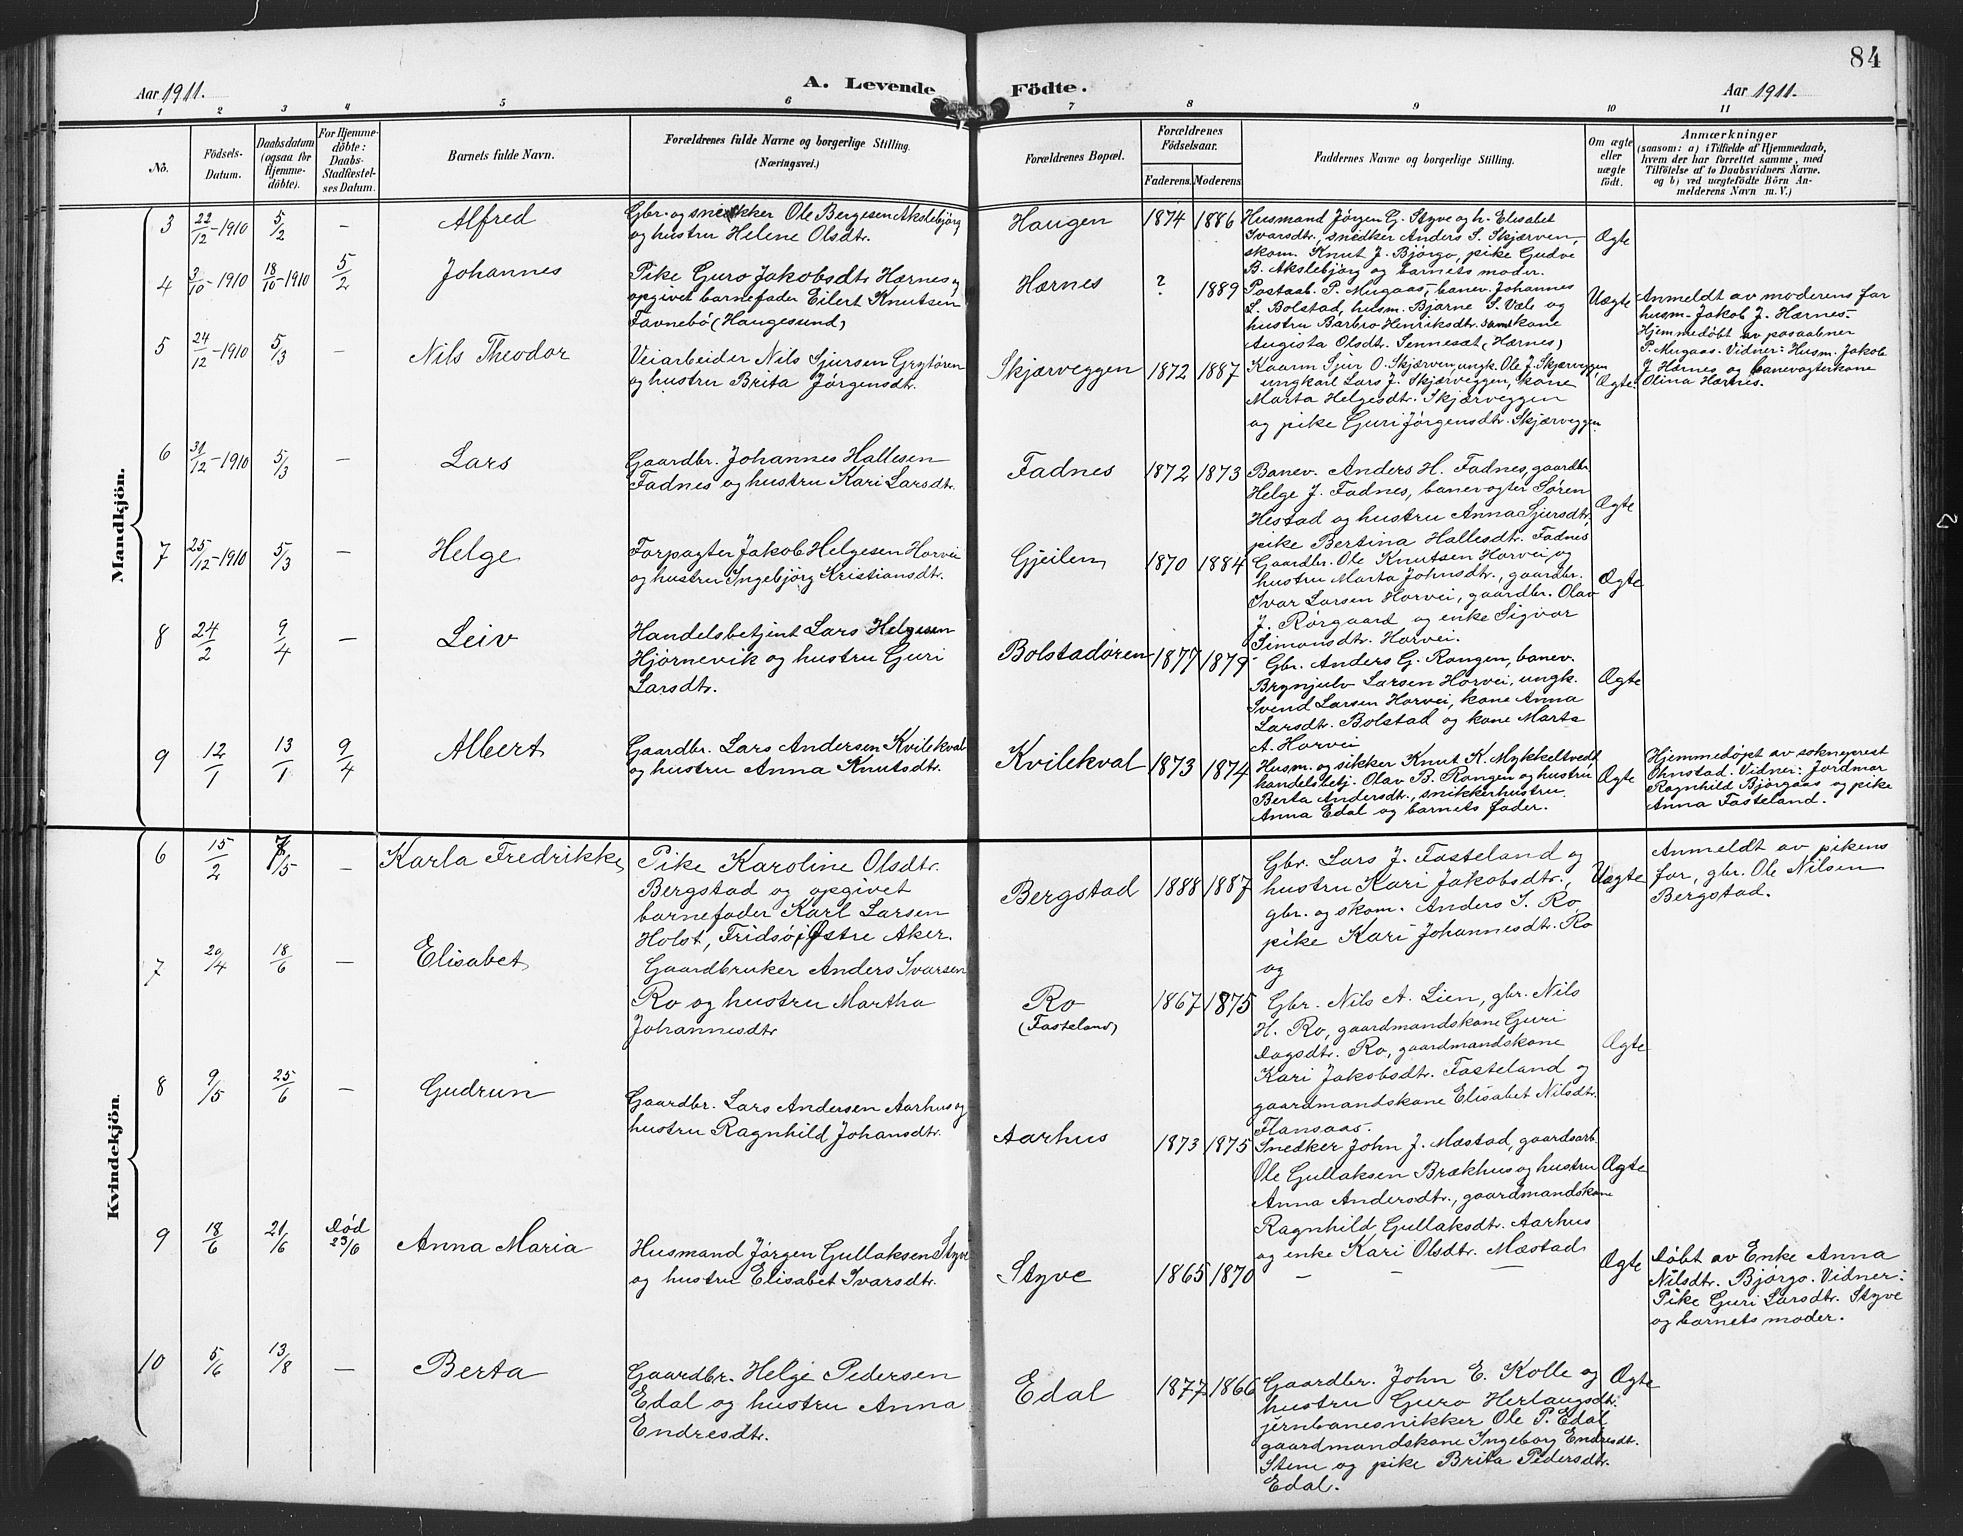 84
Aar 1911.
A. Levende Födte.
Aar 1911.
1 2 3 4 5 6 7 8 9 10 11
No.
Födsels-
Datum.
Daabsdatum
(ogsaa for
Hjemme-
döbte).
For Hjemme-
döbte:
Daabs-
Stadfæstel-
ses Datum.
Barnets fulde Navn.
Forældrenes fulde Navne og borgerlige Stilling.
(Næringsvei.)
Forældrenes Bopæl.
Forældrenes
Födselsaar.
Faderens. Moderens.
Faddernes Navne og borgerlige Stilling.
Om ægte
eller
uægte
födt.
Anmærkninger
(saasom: a) i Tilfælde af Hjemmedaab,
hvem der har forrettet samme, med
Tilföielse af to Daabsvidners Navne.
og b) ved uægtefödte Börn An-
melderens Navn m. V.)
Mandkjön.
3
22/12-1910
5/2
—
Alfred
Gbr. og snekker Ole Bergesen Akslebjørg
og hustru Helene Olsdtr.
Haugen
1874
1886
Husmand Jørgen G. Styve og h. Elisabet
Ivarsdtr., snedker Anders S. Skjærven,
skom. Knut J. Bjørgo, pike Gudve
B. Akslebjørg og barnets moder.
Ægte
4
3/10-1910
18/10-1910
5/2
Johannes
Pike Guro Jakobsdtr Hærnes og
opgivet barnefader Eilert Knutsen
Favnebø (Haugesund)
Hærnes
?
1889
Postaab. P. Mugaas, banev. Johannes
L. Bolstad, husm. Bjarne S. Væle og
hustru Barbro Henriksdtr. samt kone
Augista Olsdtr. Tennesæt (Hærnes)
Uægte
Anmeldt av moderens far
husm. Jakob J. Hærnes-
Hjemmedøbt av posaabner
P. Mugaas. Vidner: Husm. Jakob
J Hærnes og banevogterkone
Olina Hærnes.
5
24/12-1910
5/3
—
Nils Theodor
Veiarbeider Nils Sjursen Grytøren
og hustru Brita Jørgensdtr.
Skjærveggen
1872
1887
Kaarm Sjur O. Skjærven, ungk. Ole J. Skjærveggen,
ungkarl Lars J. Skjærveggen, kone
Marta Helgesdtr. Skjærveggen
og pike Guri Jørgensdtr. Skjærveggen.
Ægte.
6
31/12-1910
5/3
—
Lars
Gaardbr. Johannes Hallesen
Fadnes og hustru Kari Larsdtr.
Fadnes
1872
1873
Banev. Anders H. Fadnes, gaardbr.
Helge J. Fadnes, banevogter Søren
Hestad og hustru Anna Sjursdtr,
pike Bertina Hallesdtr. Fadnes
Ægte
7
25/12-1910
5/3
—
Helge
Forpagter Jakob Helgesen Horvei
og hustru Ingebjørg Kristiansdtr.
Gjeilen
1870
1884
Gaardbr. Ole Knutsen Horvei, og
hustru Marta Johnsdtr., gaardbr.
Ivar Larsen Horvei, gaardbr. Olav
J. Rørgaard og enke Sigvor
Simonsdtr. Horvei.
Ægte
8
24/2
9/4
—
Leiv
Handelsbetjent Lars Helgesen
Hjørnevik og hustru Guri
Larsdtr.
Bolstadøren
1877
1879
Gbr. Anders G. Rongen, banev.
Brynjulv Larsen Horvei, ungk.
Svend Larsen Horvei, kone Anna
Larsdtr. Bolstad og kone Marta
A. Horvei
Ægte
9
12/1
13/1
9/4
Albert
Gaardbr. Lars Andersen Kvilekval
og hustru Anna Knutsdtr.
Kvilekval
1873
1874
Husm. og sikker Knut K. Mykkeltvedt
handelsbetj. Olav B. Rongen og hustru
Berta Andersdtr., snikkerhustru
Anna Edal og barnets fader.
Ægte
Hjemmedøpt av sokneprest
Ohnstad. Vidner: Jordmor
Ragnhild Bjørgaas og pike
Anna Fasteland.
Kvindekjön.
6
15/2
7/5
—
Karla Fredrikke
Pike Karoline Olsdtr.
Bergstad og opgivet
barnefader Karl Larsen
Holst, Fridsø, Østre Aker.
Bergstad
1888
1887
Gbr. Lars J. Fasteland og
hustru Kari Jakobsdtr.,
gbr. og skom. Anders I. Ro,
pike Kari Johannesdtr. Ro
og
Uægte
Anmeldt av pikens
far, gbr. Ole Nilsen
Bergstad.
7
20/4
18/6
—
Elisabet
Gaardbruker Anders Ivarsen
Ro og hustru Martha
Johannesdtr
Ro
(Fasteland)
1867
1875
Gbr. Nils A. Lien, gbr. Nils
H. Ro, gaardmandskone Guri
Dagsdtr. Ro, gaardmandskone
Kari Jakobsdtr. Fasteland og
gaardmandskone Elisabet Nilsdtr.
Flansaas.
Ægte
8
9/5
25/6
—
Gudrun
Gaardbr. Lars Andersen Aarhus og
hustru Ragnhild Johansdtr.
Aarhus
1873
1875
Snedker John J. Mæstad, gaardsarb.
Ole Gullaksen Brækhus og hustru
Anna Andersdtr., gaardmandskone
Ragnhild Gullaksdtr. Aarhus
og enke Kari Olsdtr. Mæstad
Ægte
9
18/6
21/6
Død
23/6
Anna Maria
Husmand Jørgen Gullaksen Styve
og hustru Elisabet Ivarsdtr.
Styve
1865
1870
— — —
Ægte
Døbt av Enke Anna
Nilsdtr. Bjørgo. Vidner:
Pike Guri Larsdtr. Styve
og barnets moder.
10
5/6
13/8
—
Berta
Gaardbr. Helge Pedersen
Edal og hustru Anna
Endresdtr.
Edal
1877
1866
Gaardbr. John E. Kolle og
hustru Guro Herlaugsdtr.
jernbanesnikker Ole P. Edal
gaardmandskone Ingeborg Endresdtr.
Stene og pike Brita Pedersdtr.
Edal.
Ægte